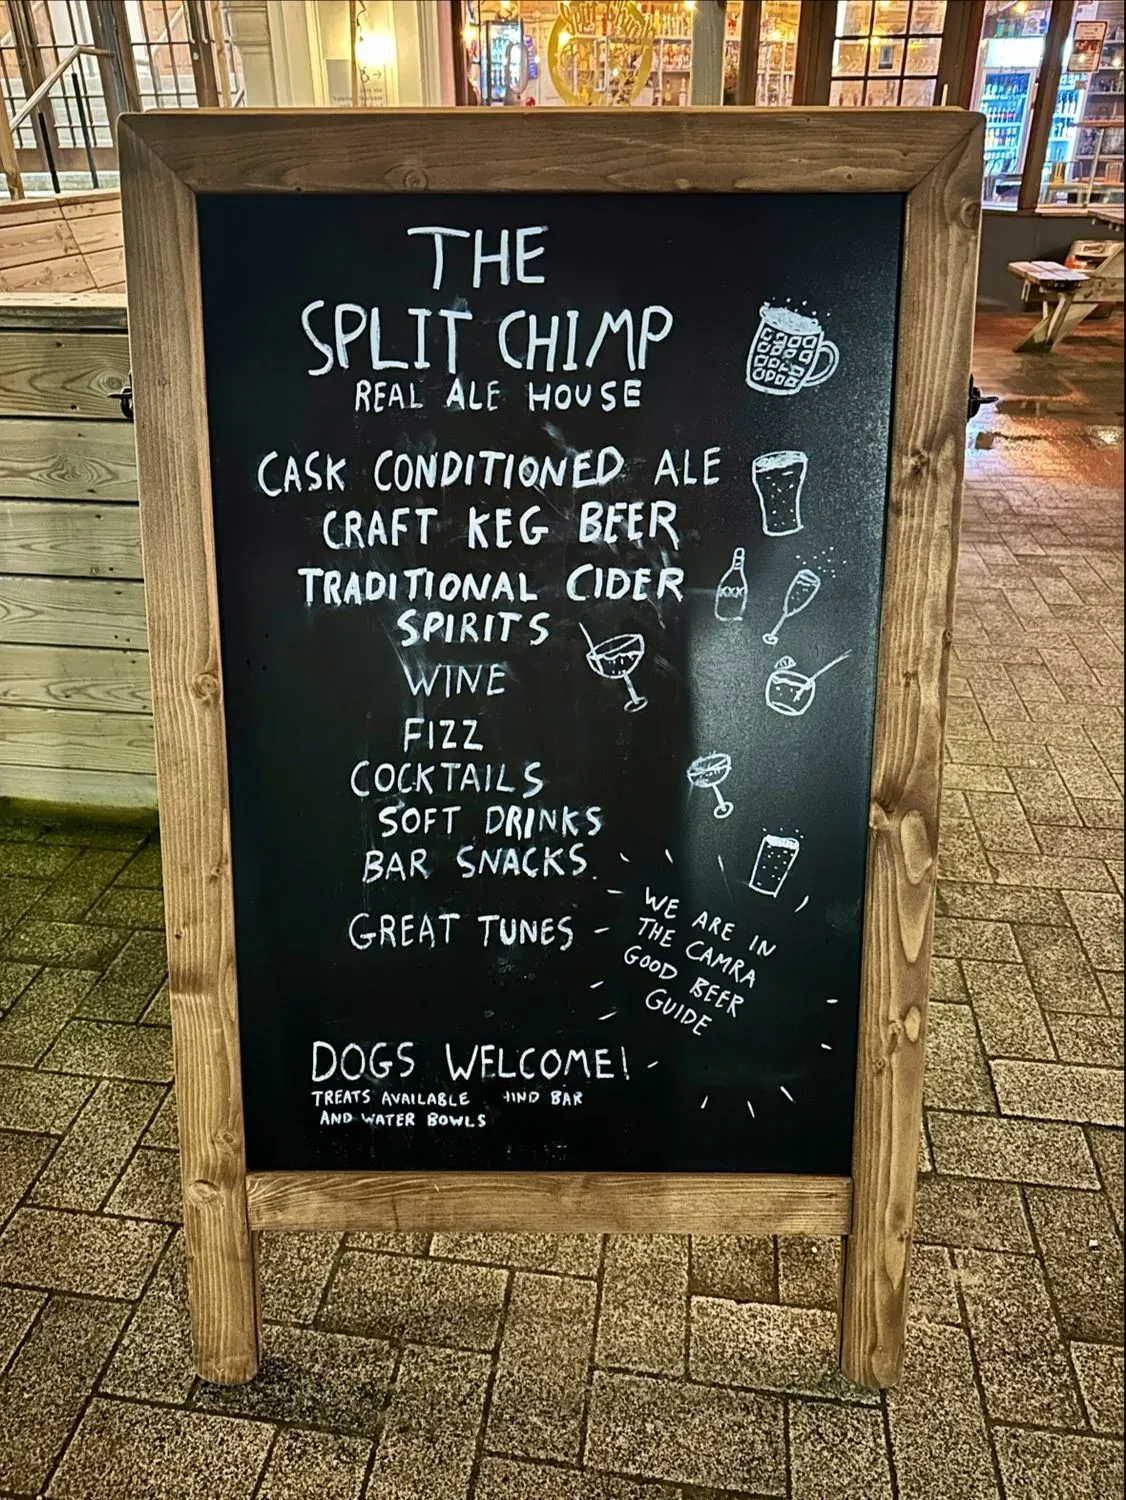 THE
SPLIT CHIMP
REAL ALE HOUSE
CASK CONDITIONED ALE
CRAFT KEG BEER
TRADITIONAL CIDER
XXX
SPIRITS
WINE
FIZZ
COCKTAILS
SOFT DRINKS
BAR SNACKS.
GREAT TUNES
WE ARE IN
THE CAMRA
GOOD BEER
GUIDE
DOGS WELCOME!
TREATS AVAILABLE BAR
AND WATER BOWLS